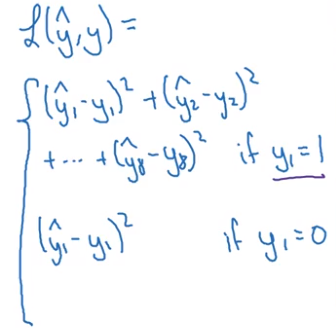 ℒ(ŷ, y) =
{ (ŷ₁ - y₁)² + (ŷ₂ - y₂)²
+ ... + (ŷ₈ - y₈)² if y₁ = 1
(ŷ₁ - y₁)² if y₁ = 0